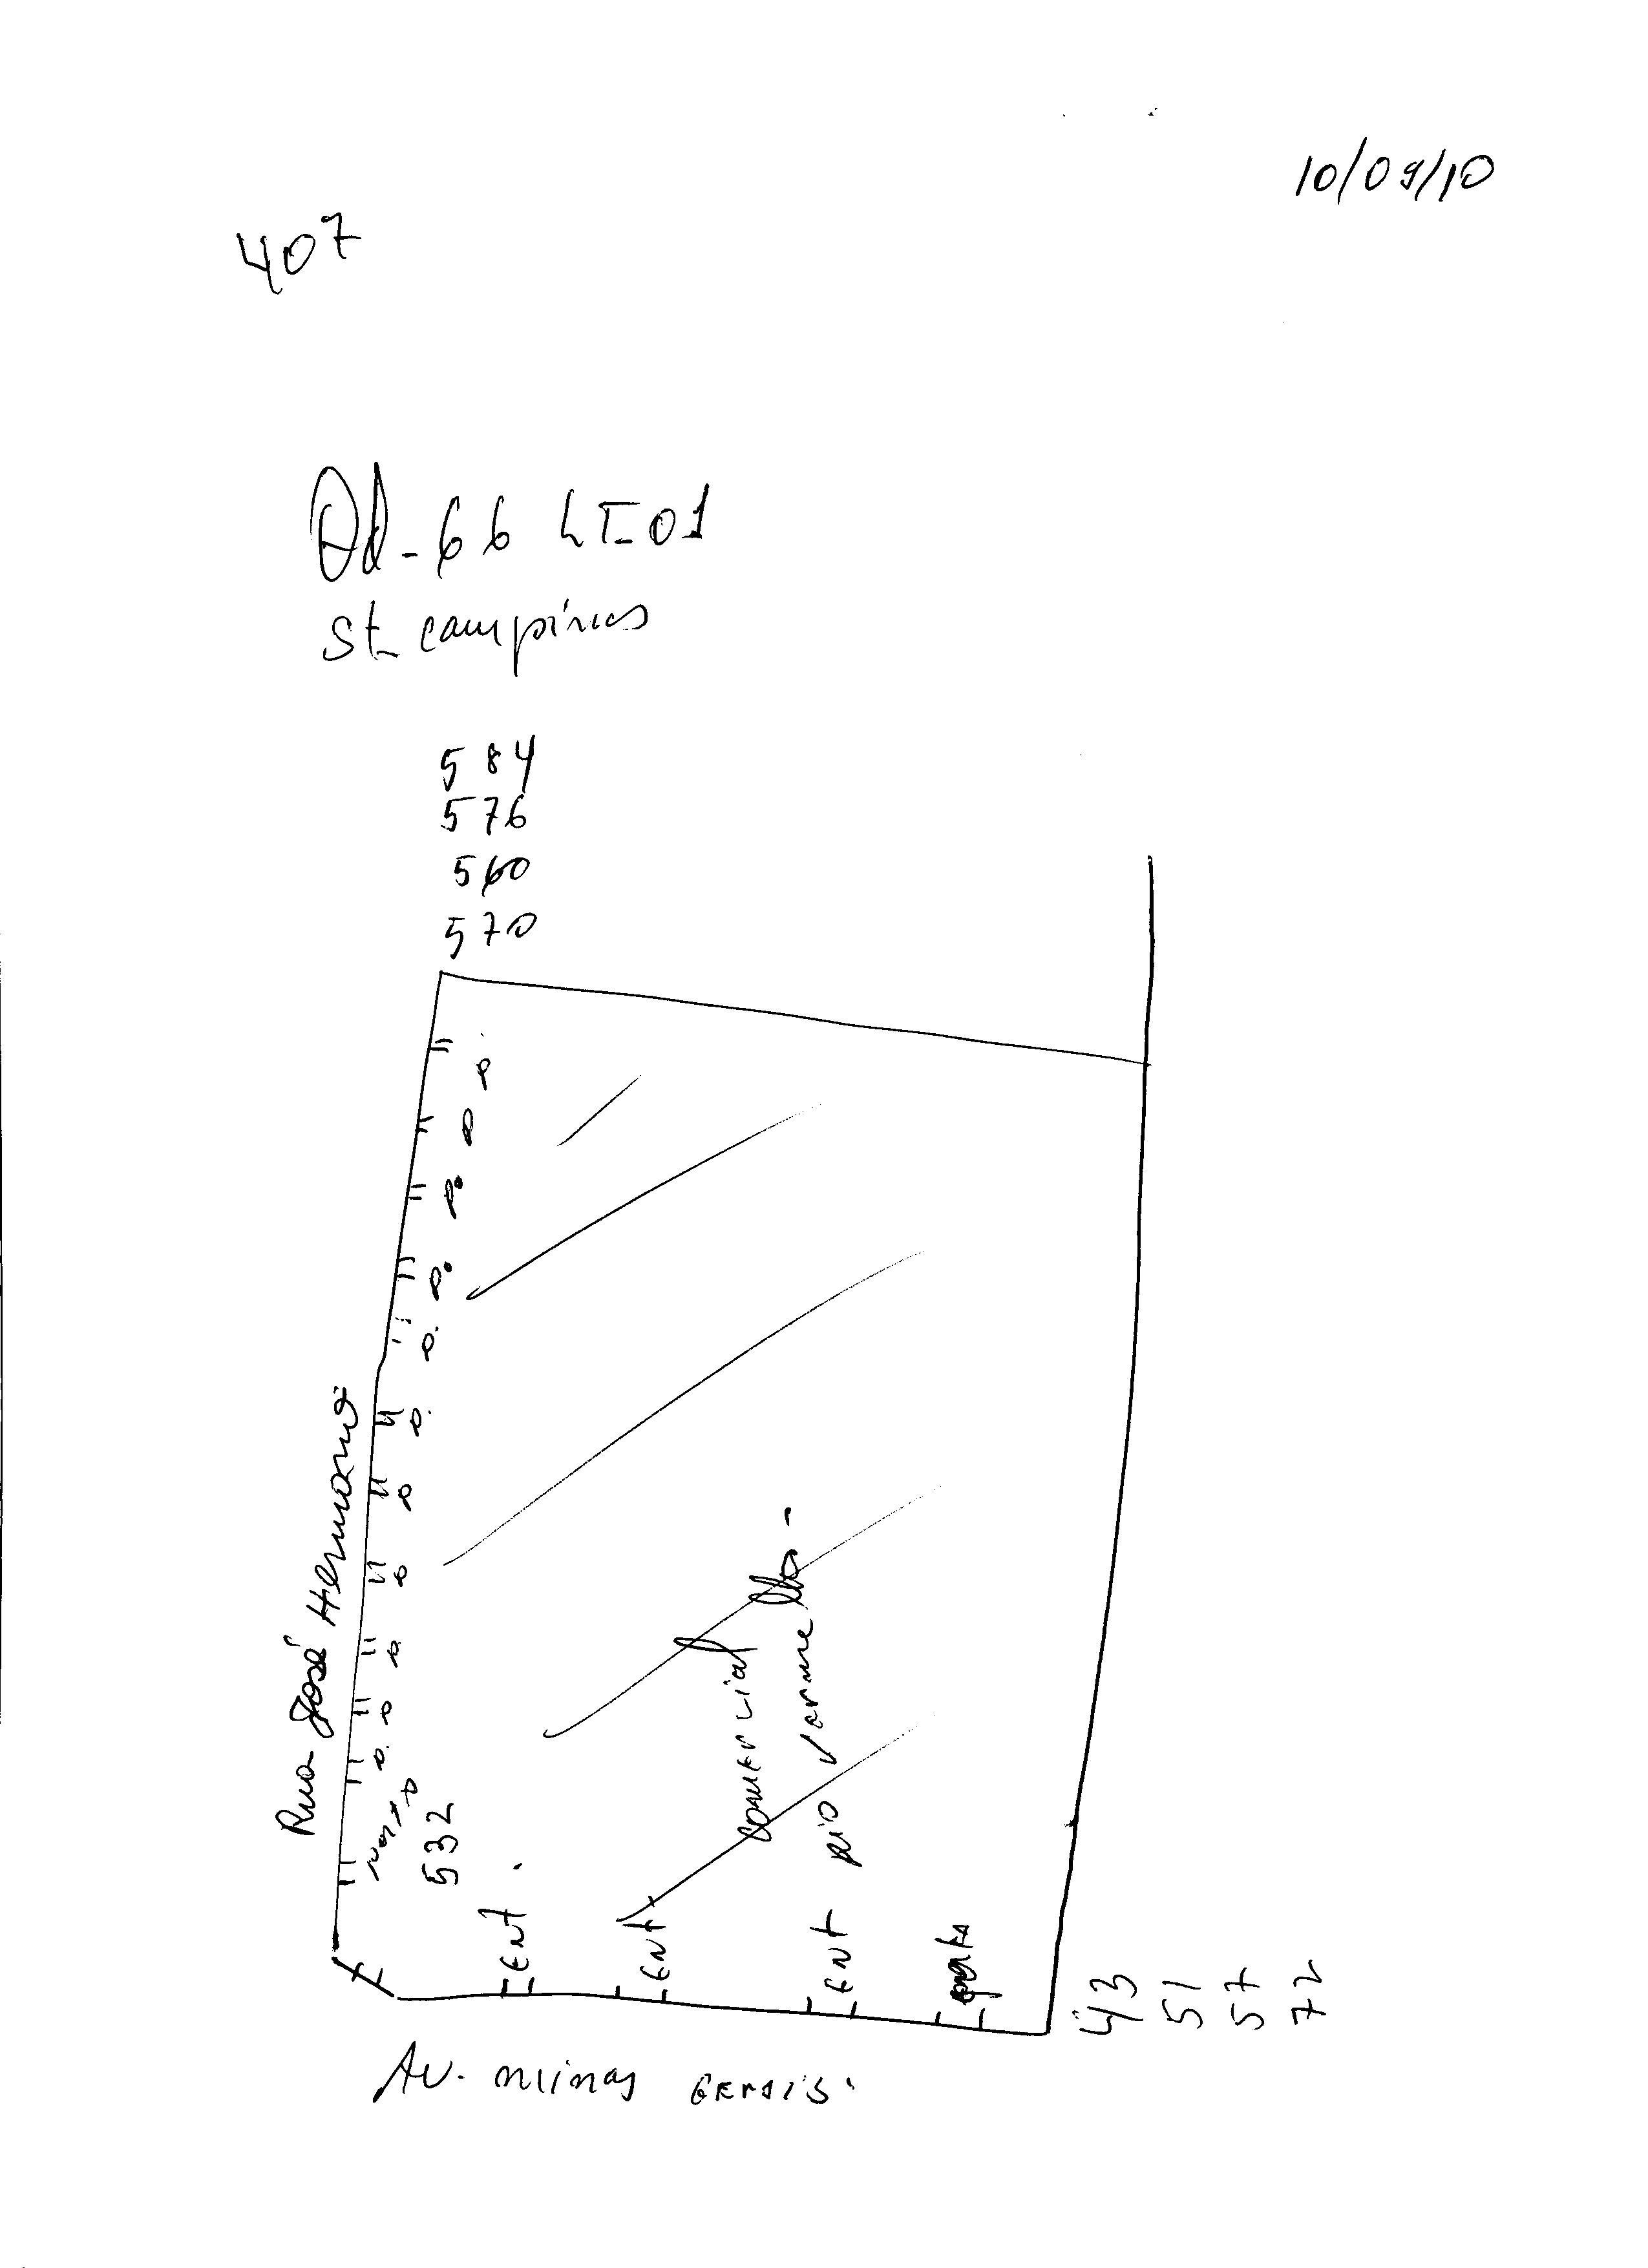 10/09/10
407
Qd-66 LT-01
St. campinas
584
576
560
570
Rua José Hermano
532
Ent.
Ent
Ent
comercial
rio vermelho
43
51
57
72
Av. minas GErais.